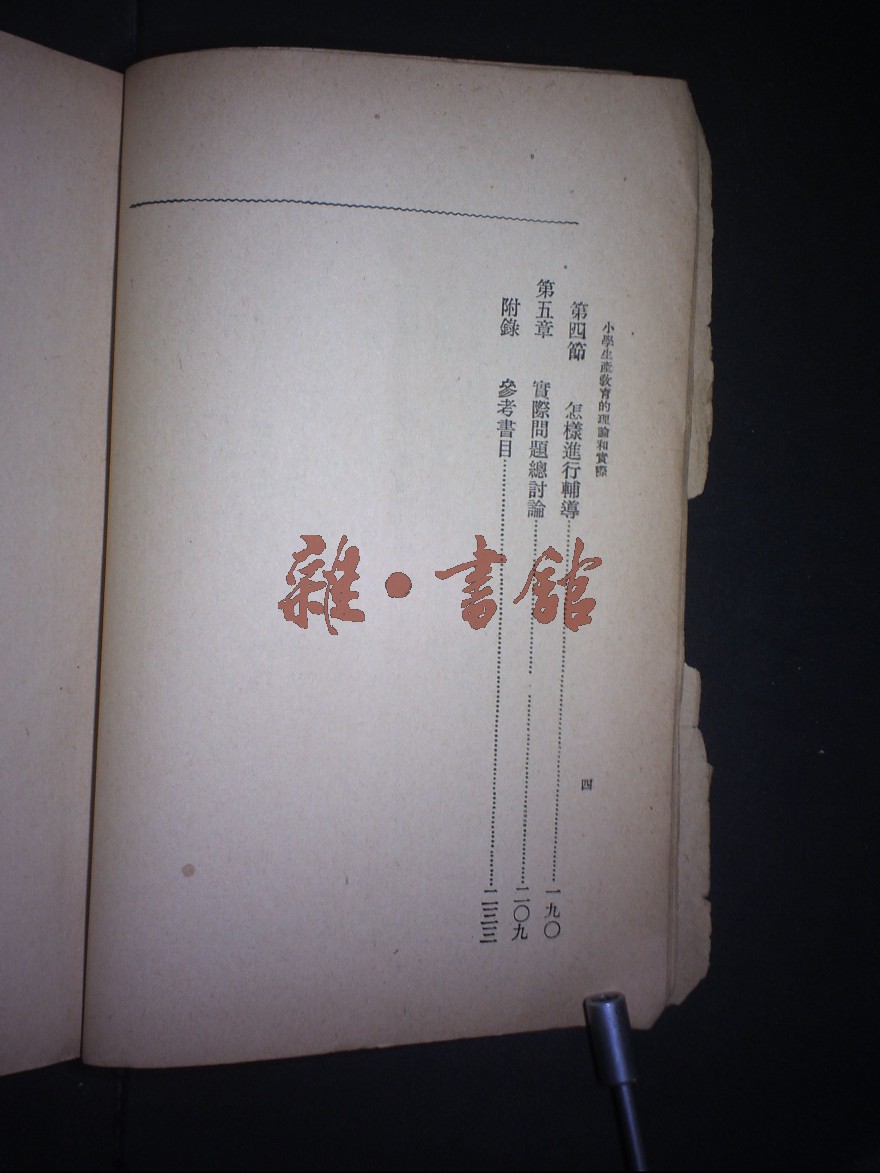 小學生產敎育的理論和實際
四
第四節 怎樣進行輔導……一九〇
第五章 實際問題總討論……二〇九
附錄 參考書目……二三三
雜・書館